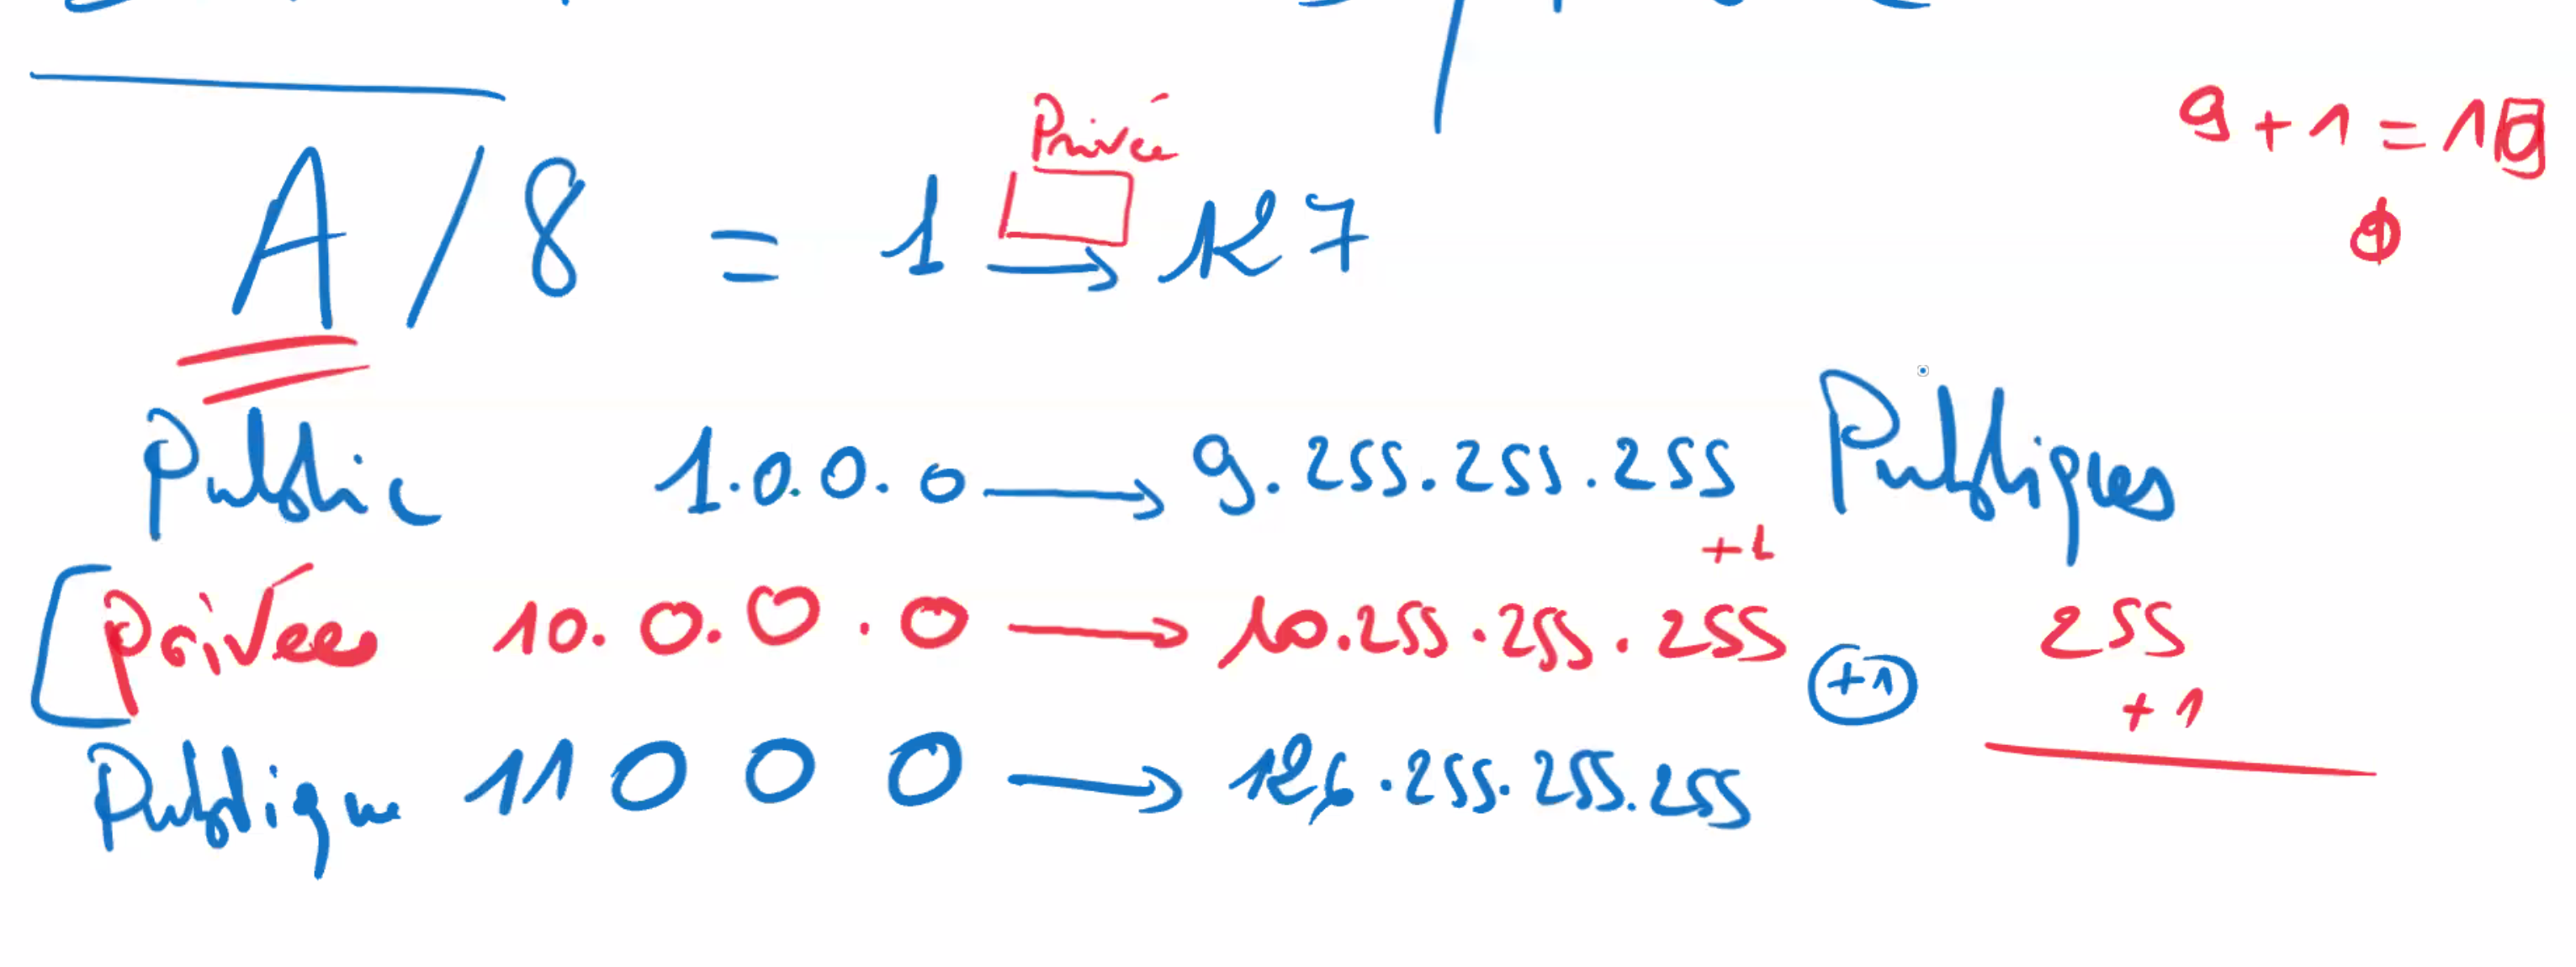 Privée
9 + 1 = 10
0
A / 8 = 1 → 127
Public 1.0.0.0 → 9.255.255.255 Publiques
+1
Privées 10.0.0.0 → 10.255.255.255 +1
255
+1
Publique 11 0 0 0 → 126.255.255.255